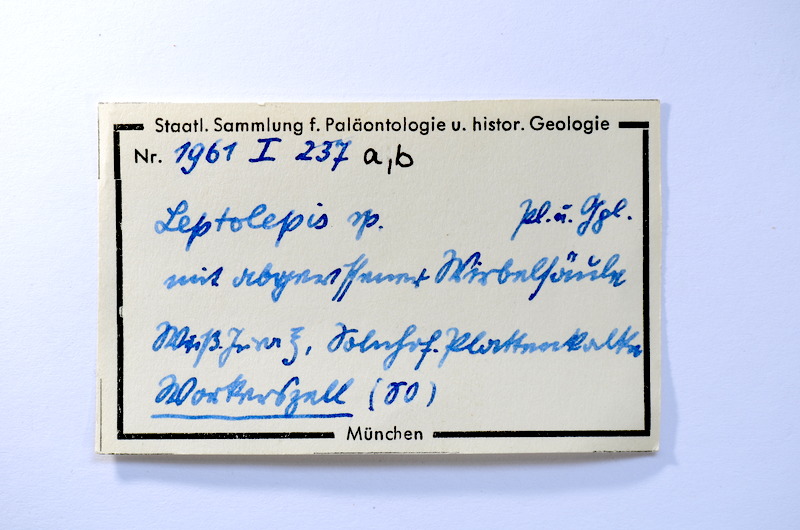 Staatl. Sammlung f. Paläontologie u. histor. Geologie
Nr. 1961 I 237 a,b
Leptolepis sp. Pl. u. Ggl.
mit abgerissener Wirbelsäule
Weiß. Jura ξ, Solnhof. Plattenkalke
Workerszell (SO)
München